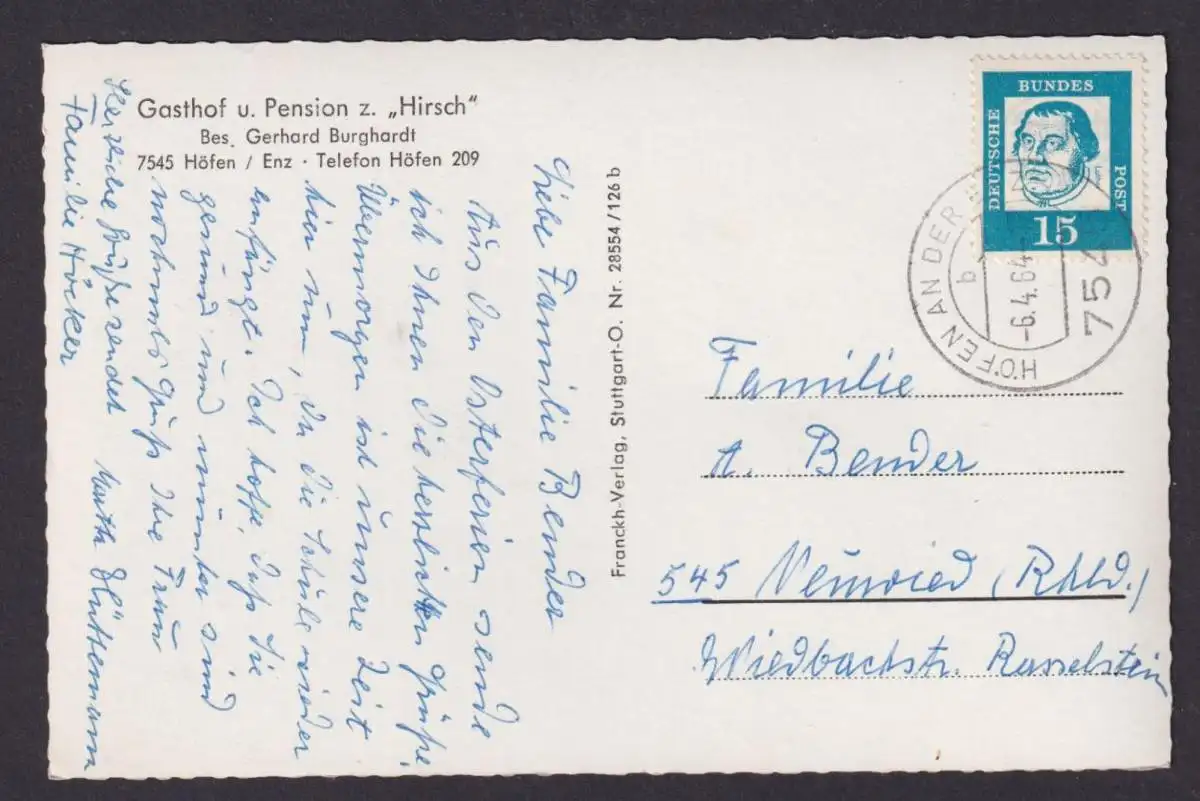 Gasthof u. Pension z. „Hirsch"
Bes. Gerhard Burghardt
7545 Höfen / Enz · Telefon Höfen 209
Liebe Familie Bender
Aus den Osterferien sende
ich Ihnen die herzlichsten Grüße.
Übermorgen ist unsere Zeit
hier um, da die Schule wieder
anfängt. Ich hoffe, daß Sie
gesund und munter sind
nochmals Gruß Ihre Frau
Herzliche Grüße sendet Martha Hüttemann
Familie Höcker
Franckh-Verlag, Stuttgart-O. Nr. 28554/126 b
DEUTSCHE BUNDES POST
15
HÖFEN AN DER
b
-6.4.64-
754
Familie
A. Bender
545 Neuwied (Rhld.)
Wiedbachstr. Rasselstein